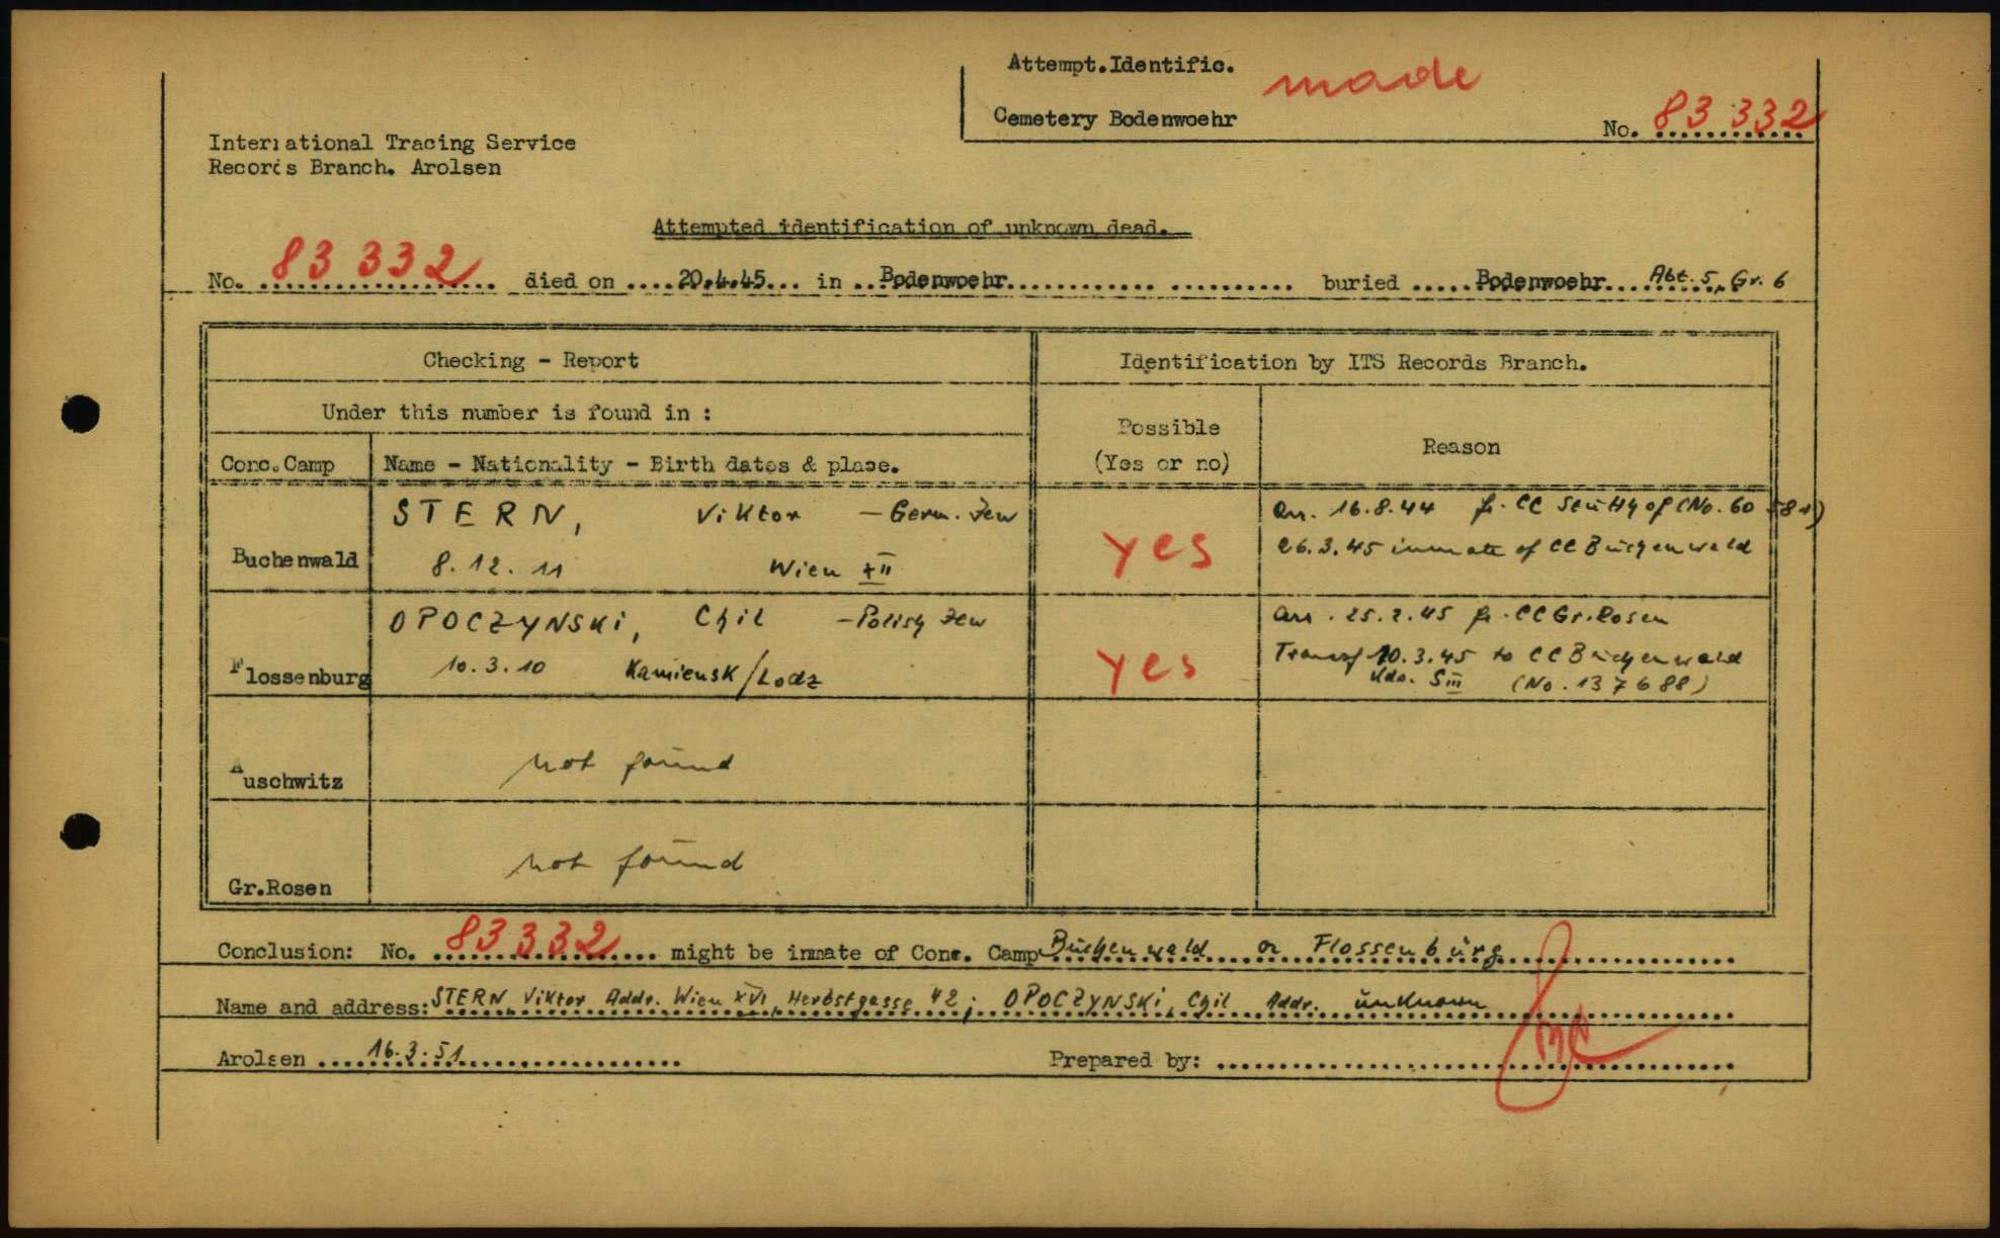 Attempt.Identific. made
Cemetery Bodenwoehr No. 83 332
International Tracing Service
Records Branch. Arolsen
Attempted identification of unknown dead.
No. 83 332 died on ....20.4.45... in ..Bodenwoehr............. .......... buried .....Bodenwoehr.... Abt. 5, Gr. 6
Checking - Report Identification by ITS Records Branch.
Under this number is found in :
Possible
(Yes or no)
Reason
Conc.Camp Name - Nationality - Birth dates & place.
Buchenwald
STERN, Viktor - Germ. Jew
8.12.11 Wien XII
yes
arr. 16.8.44 fr. CC Stutthof (No. 60 581)
26.3.45 inmate of CC Buchenwald
Flossenburg
OPOCZYNSKI, Chil - Polish Jew
10.3.10 Kamiensk/Lodz
yes
arr. 25.2.45 fr. CC Gr. Rosen
Transf 10.3.45 to CC Buchenwald
Kdo. SIII (No. 137688)
Auschwitz not found
Gr.Rosen not found
Conclusion: No. 83 332 might be inmate of Conc. Camp Buchenwald or Flossenburg
Name and address: STERN, Viktor Addr. Wien XVI, Herbstgasse 42; OPOCZYNSKI, Chil Addr. unknown
Arolsen ....16.3.51
Prepared by: